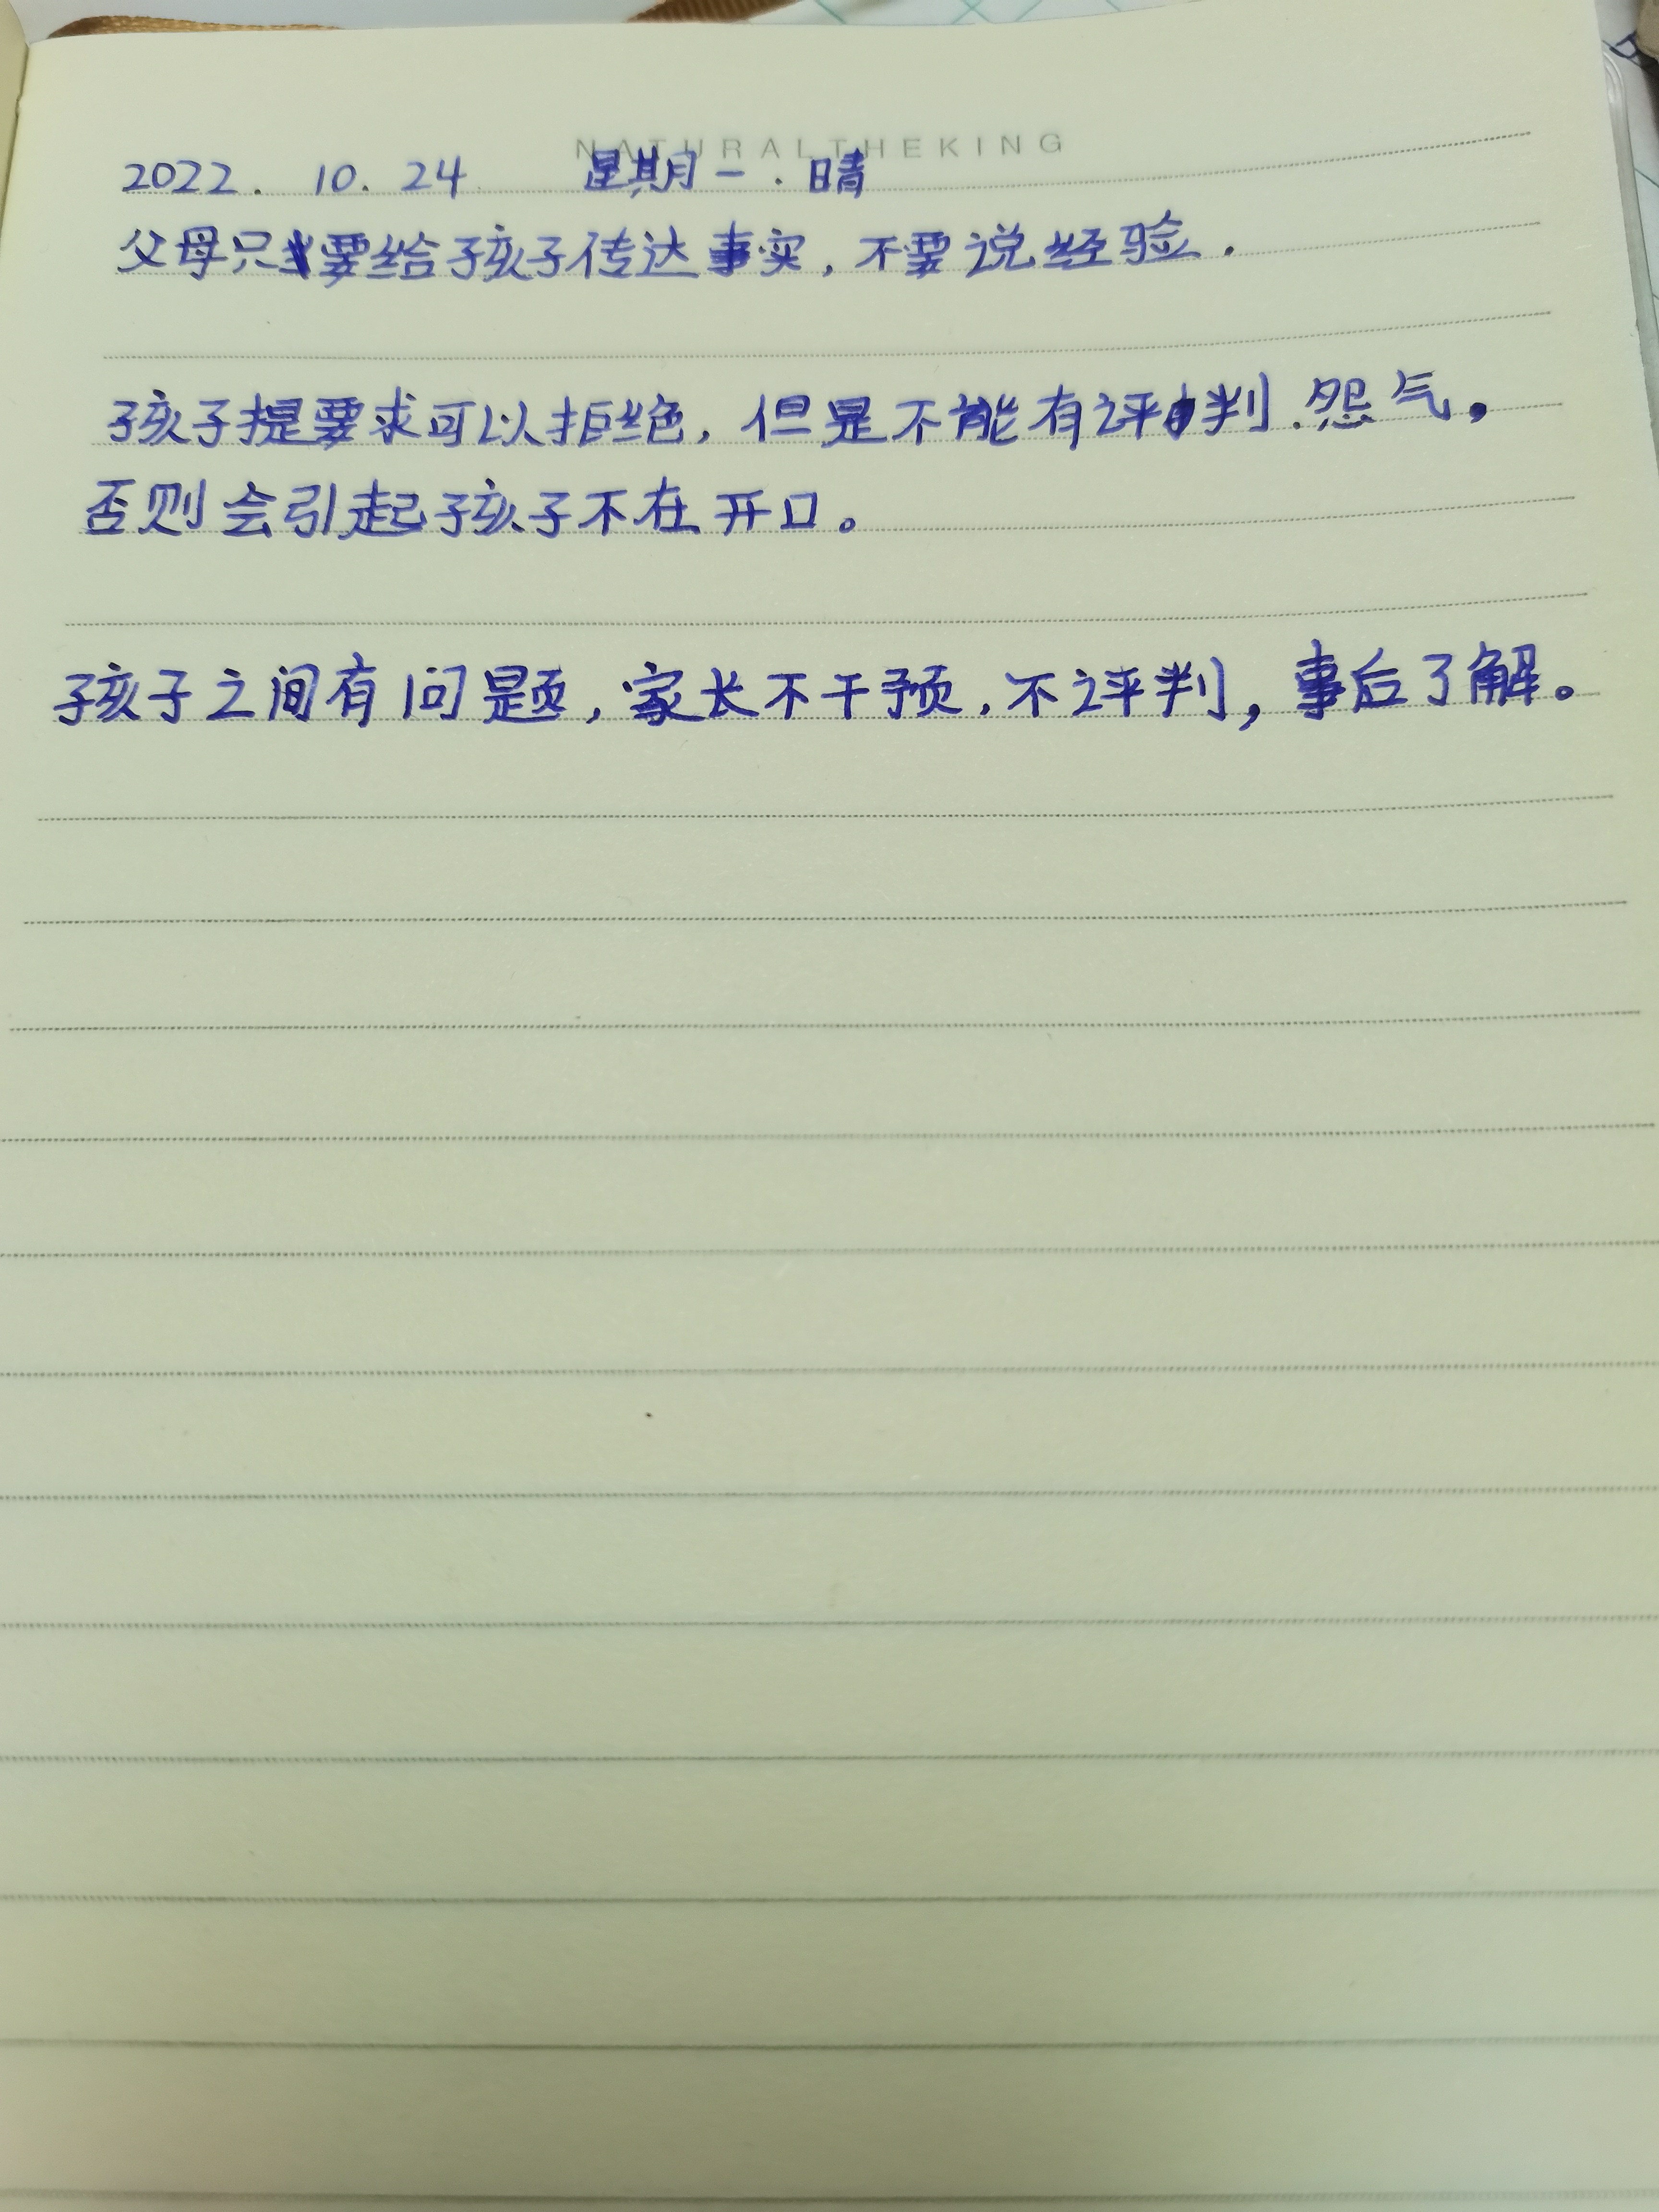 NATURALTHEKING
2022. 10. 24 星期一. 晴
父母只要给孩子传达事实, 不要说经验.
孩子提要求可以拒绝, 但是不能有评判.怨气。
否则会引起孩子不在开口。
孩子之间有问题, 家长不干预, 不评判, 事后了解。